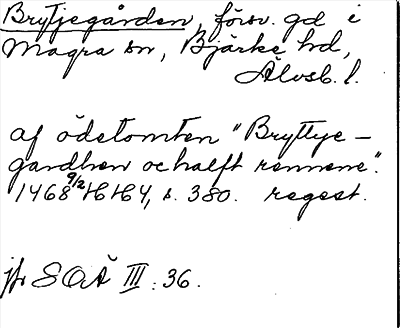 Brytjegården, försv. gd i
Magra sn, Bjärke hd,
Älvsb. l.
af ödetomten "Bryttye-
gardhen och alft rennene".
1468 9/2 HH4, s. 380. regest.
jfr SOÄ III: 36.